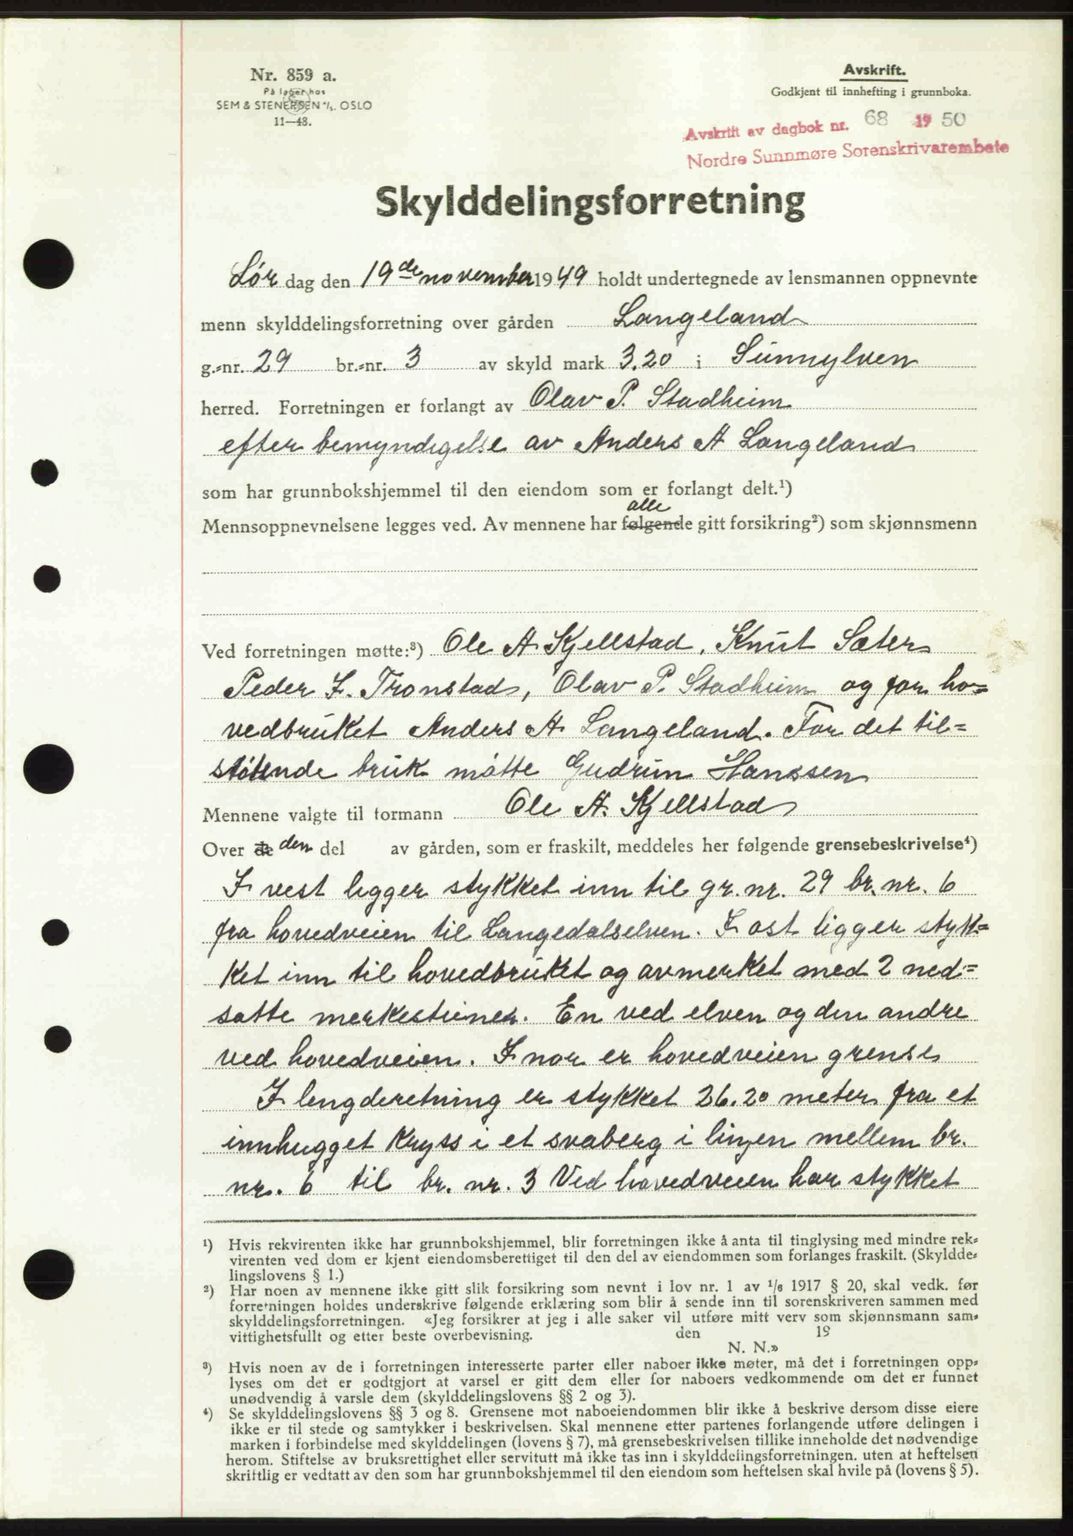 Nr. 859 a.
På lager hos
SEM & STENERSEN A/S. OSLO
11—48.
Avskrift.
Godkjent til innhefting i grunnboka.
Avskrift av dagbok nr. 68 1950
Nordre Sunnmøre Sorenskrivarembete
Skylddelingsforretning
Lør dag den 19de november 1949 holdt undertegnede av lensmannen oppnevnte
menn skylddelingsforretning over gården Langeland
g.-nr. 29 br.-nr. 3 av skyld mark 3,20 i Sunnylven
herred. Forretningen er forlangt av Olav P. Stadheim
efter bemyndigelse av Anders A Langeland
som har grunnbokshjemmel til den eiendom som er forlangt delt.¹)
alle
Mennsoppnevnelsene legges ved. Av mennene har følgende gitt forsikring²) som skjønnsmenn
Ved forretningen møtte:³) Ole A Kjellstad, Knut Sæter
Peder I. Tronstad, Olav P. Stadheim og for ho=
vedbruket Anders A Langeland. For det til=
støtende bruk møtte Gudrun Hanssen
Mennene valgte til formann Ole A. Kjellstad
Over de den del av gården, som er fraskilt, meddeles her følgende grensebeskrivelse⁴)
I vest ligger stykket inn til gr. nr. 29 br. nr. 6
fra hovedveien til Langedalselven. I øst ligger styk=
ket inn til hovedbruket og avmerket med 2 ned=
satte merkesteiner. En ved elven og den andre
ved hovedveien. I nor er hovedveien grense
I lengderetning er stykket 26.20 meter fra et
innhugget Kryss i et svaberg i linjen mellem br.
nr. 6 til br. nr. 3 Ved hovedveien har stykket
¹) Hvis rekvirenten ikke har grunnbokshjemmel, blir forretningen ikke å anta til tinglysing med mindre rek-
virenten ved dom er kjent eiendomsberettiget til den del av eiendommen som forlanges fraskilt. (Skyldde-
lingslovens § 1.)
²) Har noen av mennene ikke gitt slik forsikring som nevnt i lov nr. 1 av 1/6 1917 § 20, skal vedk. før
forretningen holdes underskrive følgende erklæring som blir å sende inn til sorenskriveren sammen med
skylddelingsforretningen. «Jeg forsikrer at jeg i alle saker vil utføre mitt verv som skjønnsmann sam-
vittighetsfullt og etter beste overbevisning. den 19
N. N.»
³) Hvis noen av de i forretningen interesserte parter eller naboer ikke møter, må det i forretningen opp-
lyses om det er godtgjort at varsel er gitt dem eller for naboers vedkommende om det er funnet
unødvendig å varsle dem (skylddelingslovens §§ 2 og 3).
⁴) Se skylddelingslovens §§ 3 og 8. Grensene mot naboeiendommen blir ikke å beskrive dersom disse eiere
ikke er til stede og samtykker i beskrivelsen. Skal mennene etter partenes forlangende utføre delingen i
marken i forbindelse med skylddelingen (lovens § 7), må grensebeskrivelsen tillike inneholde det nødvendige
herom. Stiftelse av bruksrettighet eller servitutt må ikke tas inn i skylddelingsforretningen, uten at heftelsen
skriftlig er vedtatt av den som har grunnbokshjemmel til den eiendom som heftelsen skal hvile på (lovens § 5).